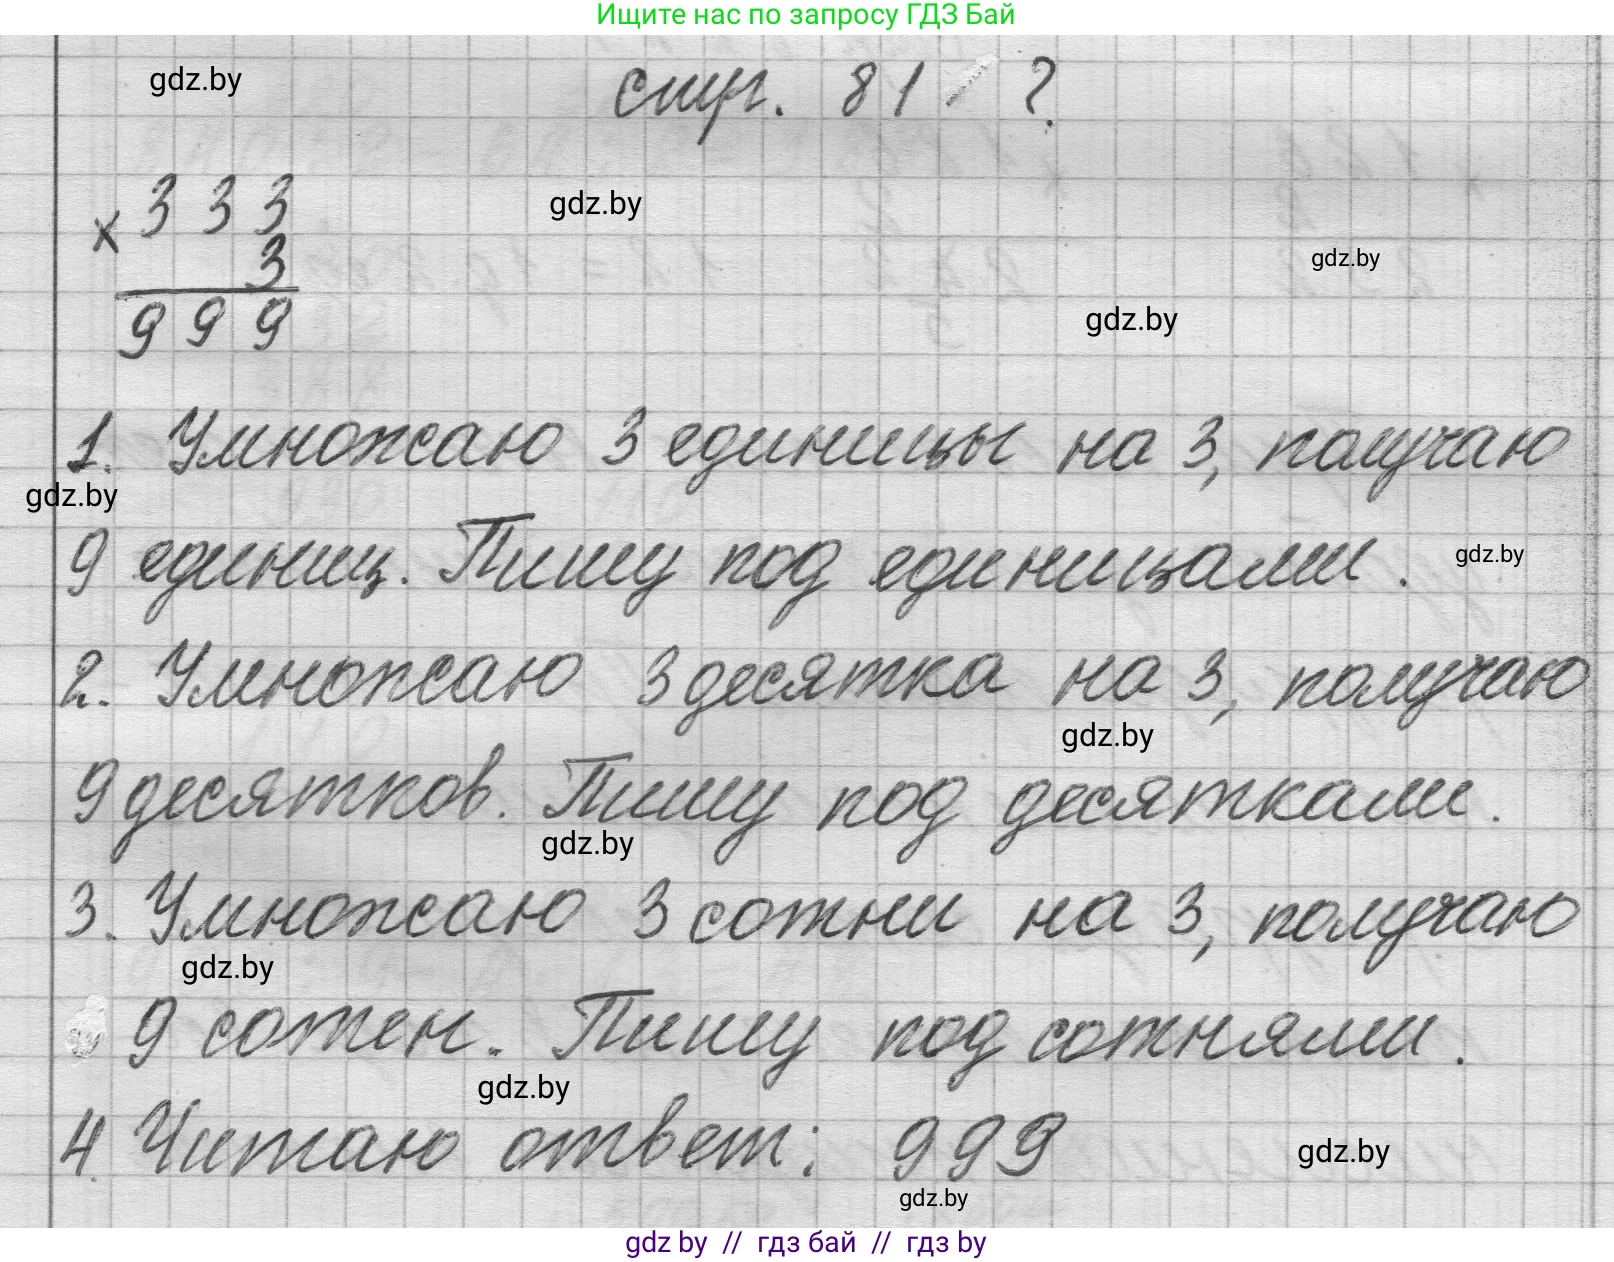 Ищите нас по запросу ГДЗ Бай
gdz.by
стр. 81 ?
× 333
gdz.by
3
gdz.by
999
gdz.by
1. Умножаю 3 единицы на 3, получаю
gdz.by
9 единиц. Пишу под единицами.
gdz.by
2. Умножаю 3 десятка на 3, получаю
gdz.by
9 десятков. Пишу под десятками.
gdz.by
3. Умножаю 3 сотни на 3, получаю
gdz.by
9 сотен. Пишу под сотнями.
gdz.by
4. Читаю ответ: 999
gdz.by
gdz.by
gdz by // гдз бай // гдз by